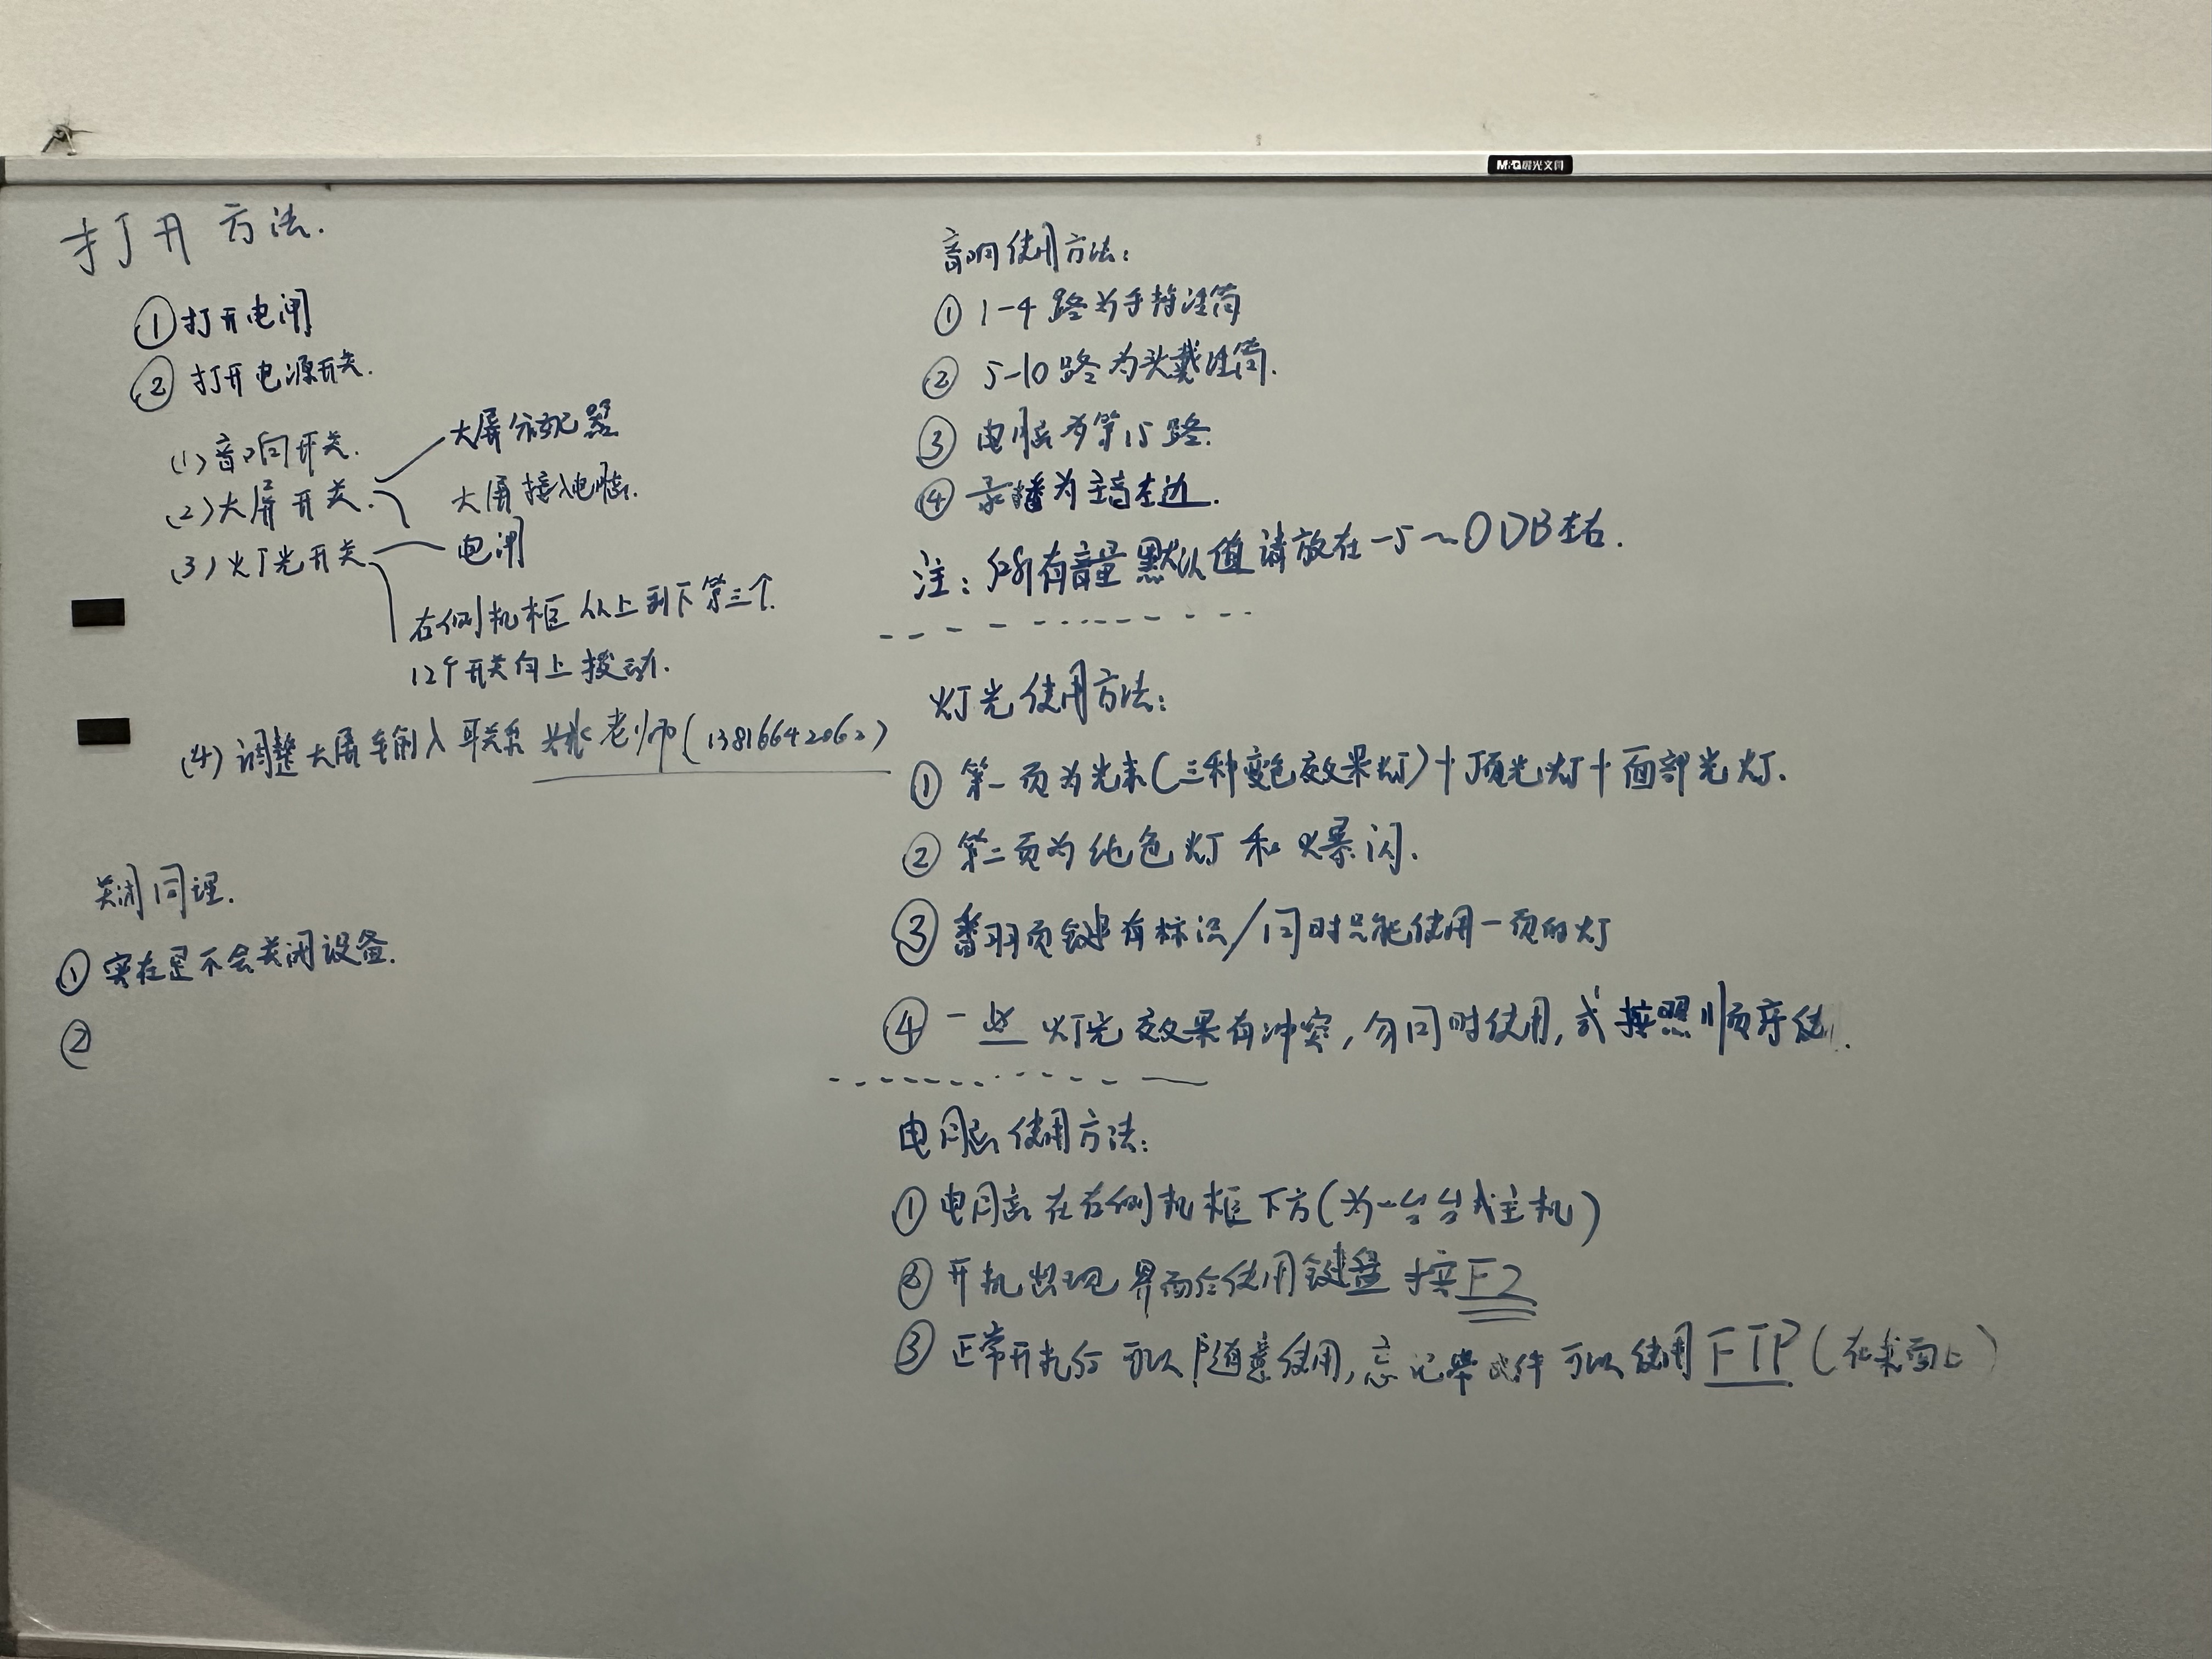 M&G晨光文具
打开方法.
①打开电闸
②打开电源开关.
(1)音响开关.
(2)大屏开关.
大屏分配器
大屏接入电脑.
(3)灯光开关
电闸
右侧机柜从上到下第三个
12个开关向上拨动.
(4)调整大屏输入联系姚老师(13816642062)
关闭同理.
①实在是不会关闭设备.
②
音响使用方法:
①1-4路为手持话筒
②5-10路为头戴话筒.
③电脑为第15路.
④录播为主音左边.
注:所有音量默认值请放在-5~0DB左右.
灯光使用方法:
①第一页为光束(三种变色效果灯)+顶光灯+面部光灯.
②第二页为纯色灯和爆闪.
③翻页键有标识/同时只能使用一页的灯
④一些灯光效果有冲突,勿同时使用,或按照顺序使.
电脑使用方法:
①电脑在右侧机柜下方(为一台台式主机)
②开机出现界面后使用键盘按F2
③正常开机后可以随意使用,忘记带文件可以使用FTP(在桌面上)